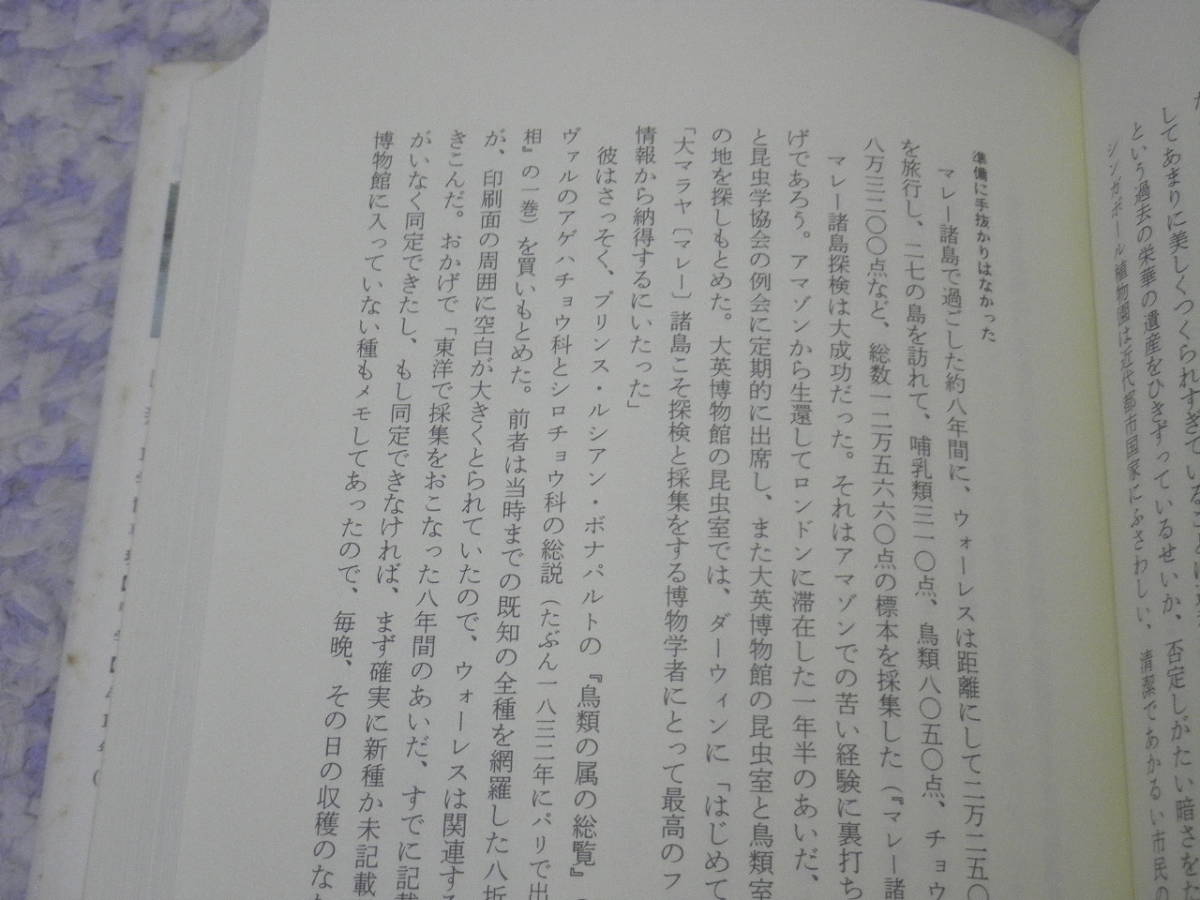 してあまりに美しくつくられすぎている
という過去の栄華の遺産をひきずっているせいか、否定しがたい暗さをた
シンガポール植物園は近代都市国家にふさわしい、清潔であかるい市民の
準備に手抜かりはなかった
マレー諸島で過ごした約八年間に、ウォーレスは距離にして二万二五〇
を旅行し、二七の島を訪れて、哺乳類三一〇点、鳥類八〇五〇点、チョウ
八万三二〇〇点など、総数一二万五六六〇点の標本を採集した（『マレー諸
マレー諸島探検は大成功だった。それはアマゾンでの苦い経験に裏打ち
げであろう。アマゾンから生還してロンドンに滞在した一年半のあいだ、
と昆虫学協会の例会に定期的に出席し、また大英博物館の昆虫室と鳥類室
の地を探しもとめた。大英博物館の昆虫室では、ダーウィンに「はじめて
「大マラヤ〔マレー〕諸島こそ探検と採集をする博物学者にとって最高のフ
情報から納得するにいたった」
彼はさっそく、プリンス・ルシアン・ボナパルトの『鳥類の属の総覧』
ヴァルのアゲハチョウ科とシロチョウ科の総説（たぶん一八三二年にパリで出
相』の一巻）を買いもとめた。前者は当時までの既知の全種を網羅した八折
が、印刷面の周囲に空白が大きくとられていたので、ウォーレスは関連する
きこんだ。おかげで「東洋で採集をおこなった八年間のあいだ、すでに記載
がいなく同定できたし、もし同定できなければ、まず確実に新種か未記載
博物館に入っていない種もメモしてあったので、毎晩、その日の収穫のなか